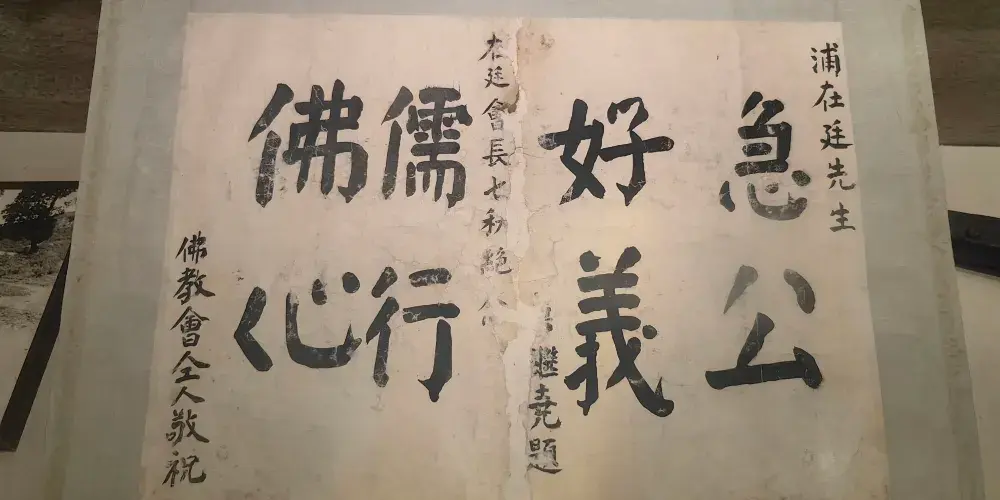 浦在廷先生
急公
好義
繼堯題
在廷會長七秩
儒行
佛心
佛教會仝人敬祝